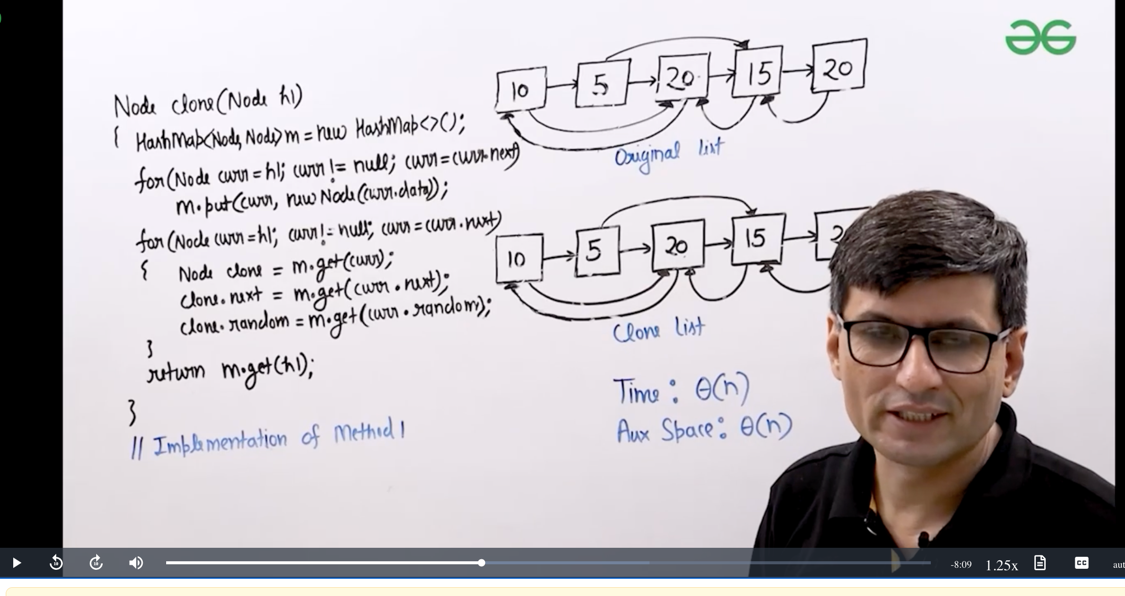 Node clone(Node h1)
{ HashMap<Node, Node> m = new HashMap<>();
for(Node curr = h1; curr != null; curr = curr.next)
m.put(curr, new Node(curr.data));
for(Node curr = h1; curr != null; curr = curr.next)
{ Node clone = m.get(curr);
clone.next = m.get(curr.next);
clone.random = m.get(curr.random);
}
return m.get(h1);
}
// Implementation of Method 1
10 5 20 15 20
Original list
10 5 20 15 2
Clone list
Time: θ(n)
Aux Space: θ(n)
-8:09 1.25x CC aut